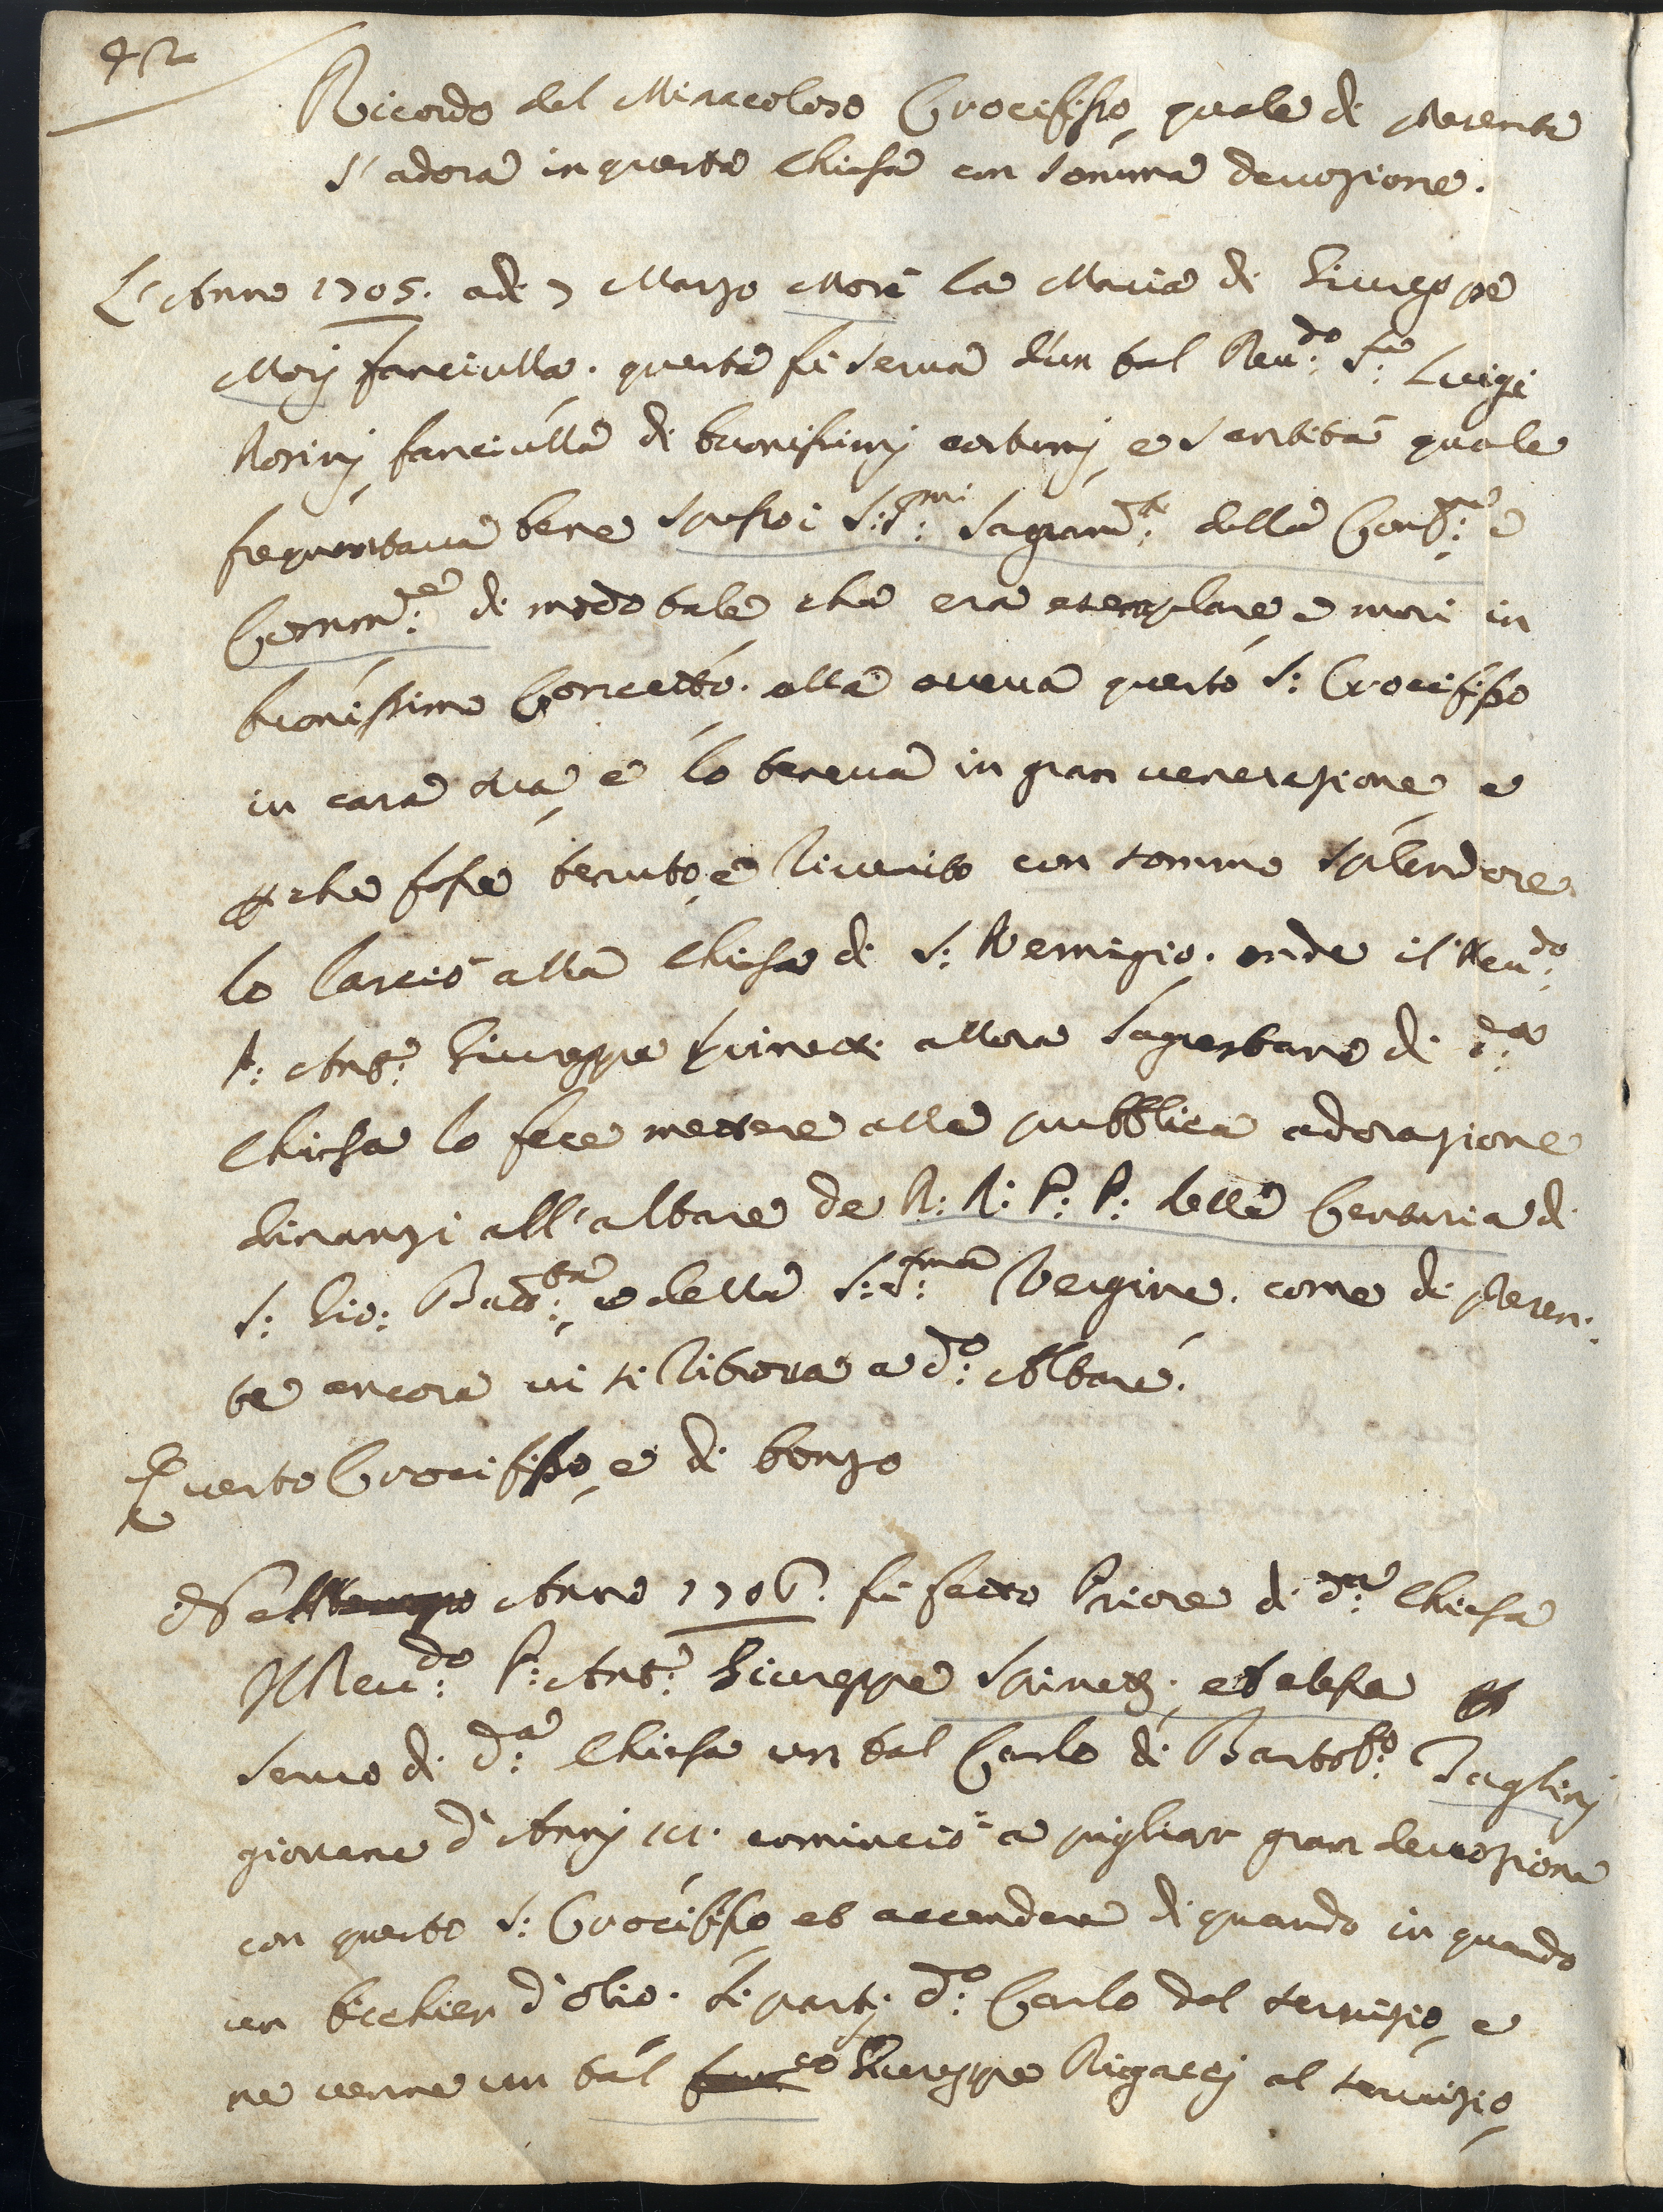 42
Ricordo del Miracoloso Crocifisso, quale di presente
s'adora in questa Chiesa con somma devozione.
L'Anno 1705. adì 7 Marzo Morì la Maria di Giuseppe
Morj fanciulla. questa fù serva d'un tal Reu:do S:re Luigi
Rosinj, fanciulla di buonissimj costumj, e santità quale
frequentava bene spesso i S:S:mi Sagram:ti della Conf:ne e
Comm:ne di modo tale che era esemplare e morì in
buonissimo Concetto. ella aveva questo S: Crocifisso
in casa sua, e lo teneva in gran venerazione, e
p che fosse tenuto, e riverito con sommo splendore
lo lasciò alla Chiesa di S: Remigio. onde il Reu:do
P: Ant:o Giuseppe Spinetti allora Sagrestano di d:a
Chiesa lo fece mettere alla pubblica adorazione
dinanzi all'altare de R: R: P: P: della Centuria di
S: Gio: Batt:ta, e della S:S:ma Vergine. come di presen:
te ancora vi si ritrova a d:o Altare.
Questo Crocifisso, è di bonzo
Anno 1706. fù fatto Priore di d:a Chiesa
Il Reu:do P: Ant:o Giuseppe Spinettj. et elesse p
servo di d:a Chiesa un tal Carlo di Bartol:o Taglinj
giovane d'Annj cominciò a pigliar gran devozione
con questo S: Crocifisso et accender di quando in quando
un bicchier d'olio. si partj d:o Carlo dal servizio, e
ne venne un tal Giuseppe Rigaccj al servizio,